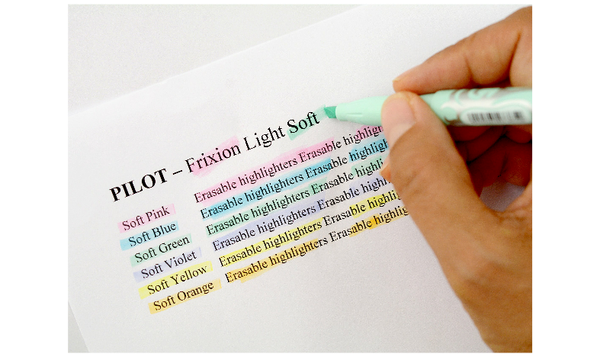 PILOT – Frixion Light Soft
Soft Pink Erasable highlighters Erasable highlig
Soft Blue Erasable highlighters Erasable highlig
Soft Green Erasable highlighters Erasable highli
Soft Violet Erasable highlighters Erasable highl
Soft Yellow Erasable highlighters Erasable highlig
Soft Orange Erasable highlighters Erasable highlig